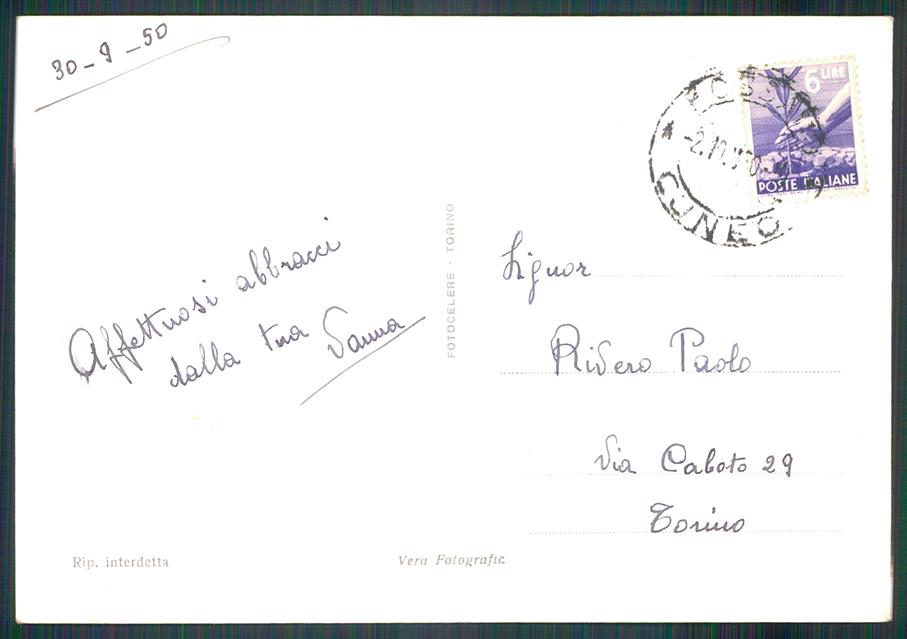 30-9-50
6 LIRE
POSTE ITALIANE
CUNEO
Affettuosi abbracci
dalla tua Vanna
FOTOCELERE - TORINO
Signor
Rivero Paolo
Via Caboto 29
Torino
Rip. interdetta
Vera Fotografic